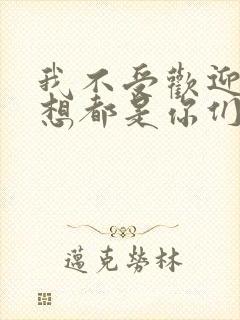 我不受歡迎
想都是你们
邁克勞林